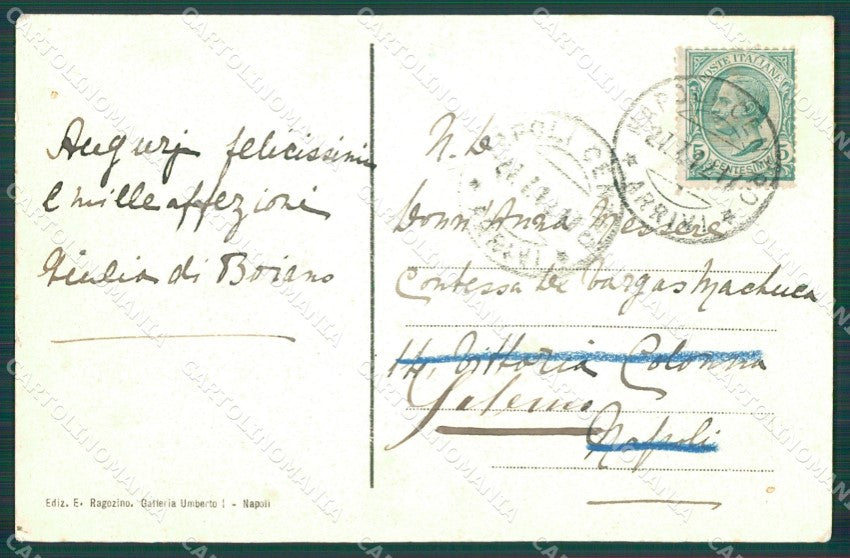 Augurj felicissimi
e mille affezioni
Giulia di Boiano
Ediz. E. Ragozino. Galleria Umberto I - Napoli
POSTE ITALIANE
CENTESIMI 5
NAPOLI CENTRO
ARRIVI
NAPOLI CENTRO
ARRIVI
N. D.
Donn'Anna Messere
Contessa De Vargas Machuca
14, Vittoria Colonna
Salerno
Napoli
CARTOLINOMANIA